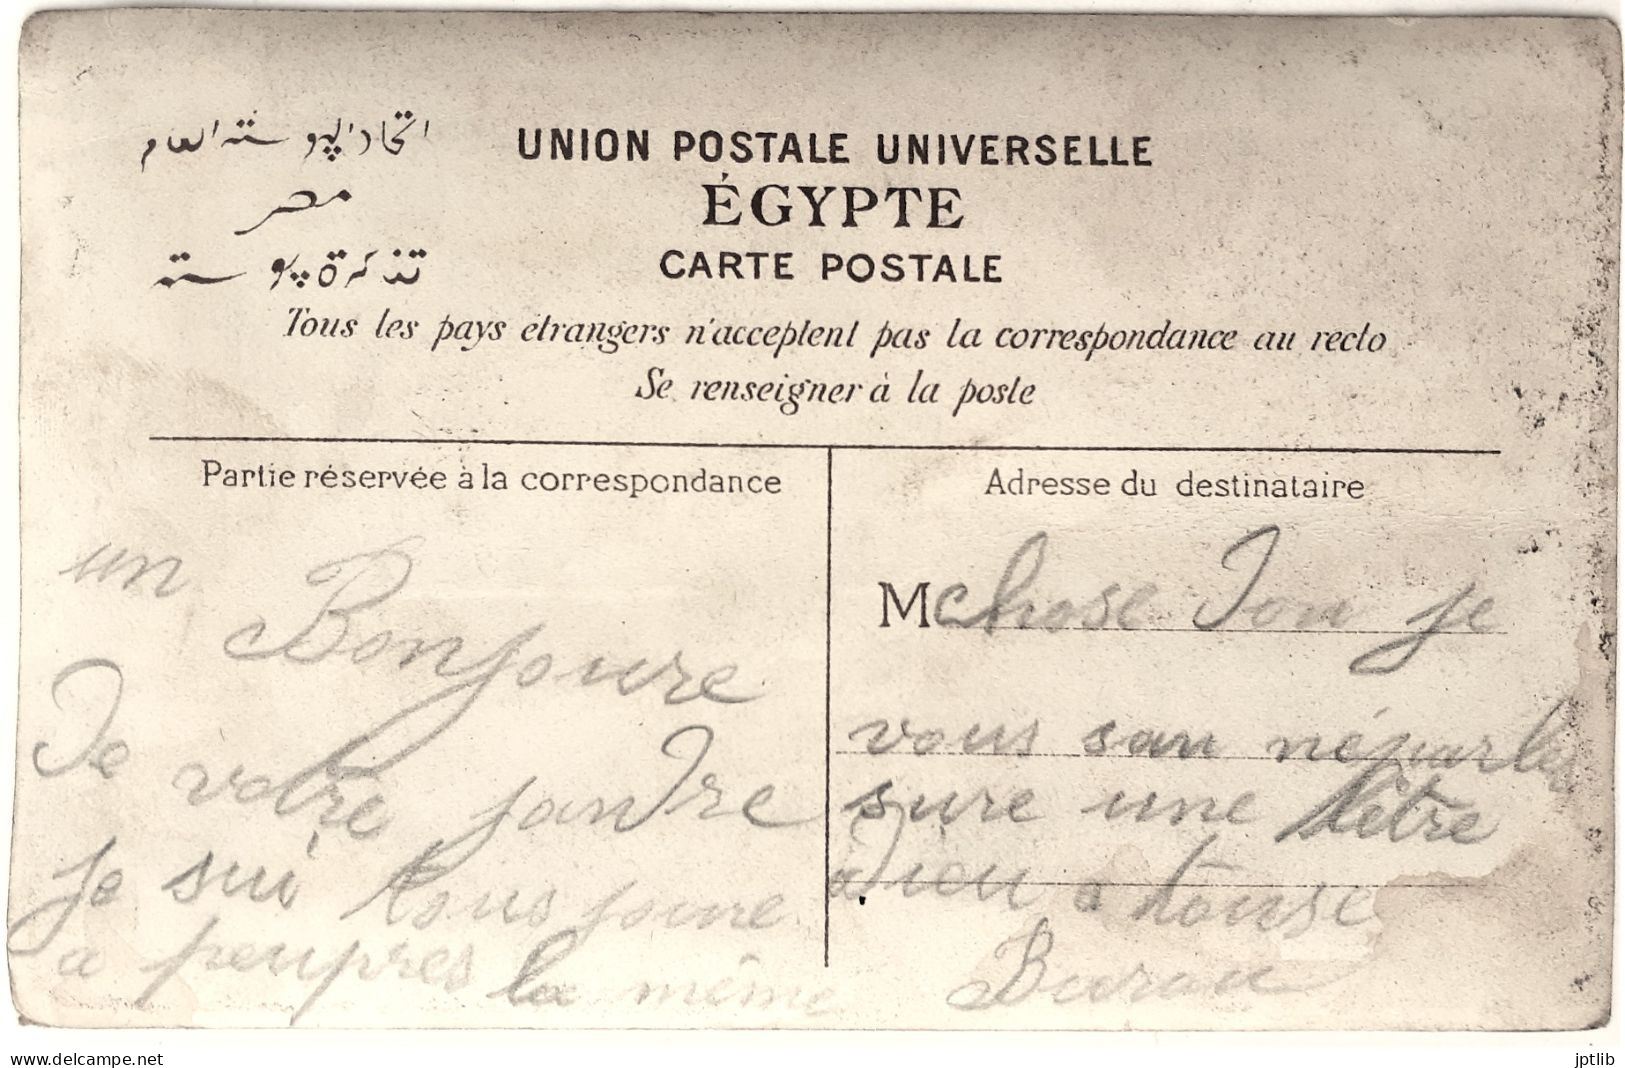 اتحاد البوسته العام
مصر
تذكرة بوسته
UNION POSTALE UNIVERSELLE
ÉGYPTE
CARTE POSTALE
Tous les pays étrangers n'acceptent pas la correspondance au recto
Se renseigner à la poste
Partie réservée à la correspondance
un
Bonjoure
De votre jandre
je sui tous joure
a peupres la même
Adresse du destinataire
M chose Don je
vous san néparler
sure une lêtre
adieu a touse
Burau
www.delcampe.net
jptlib